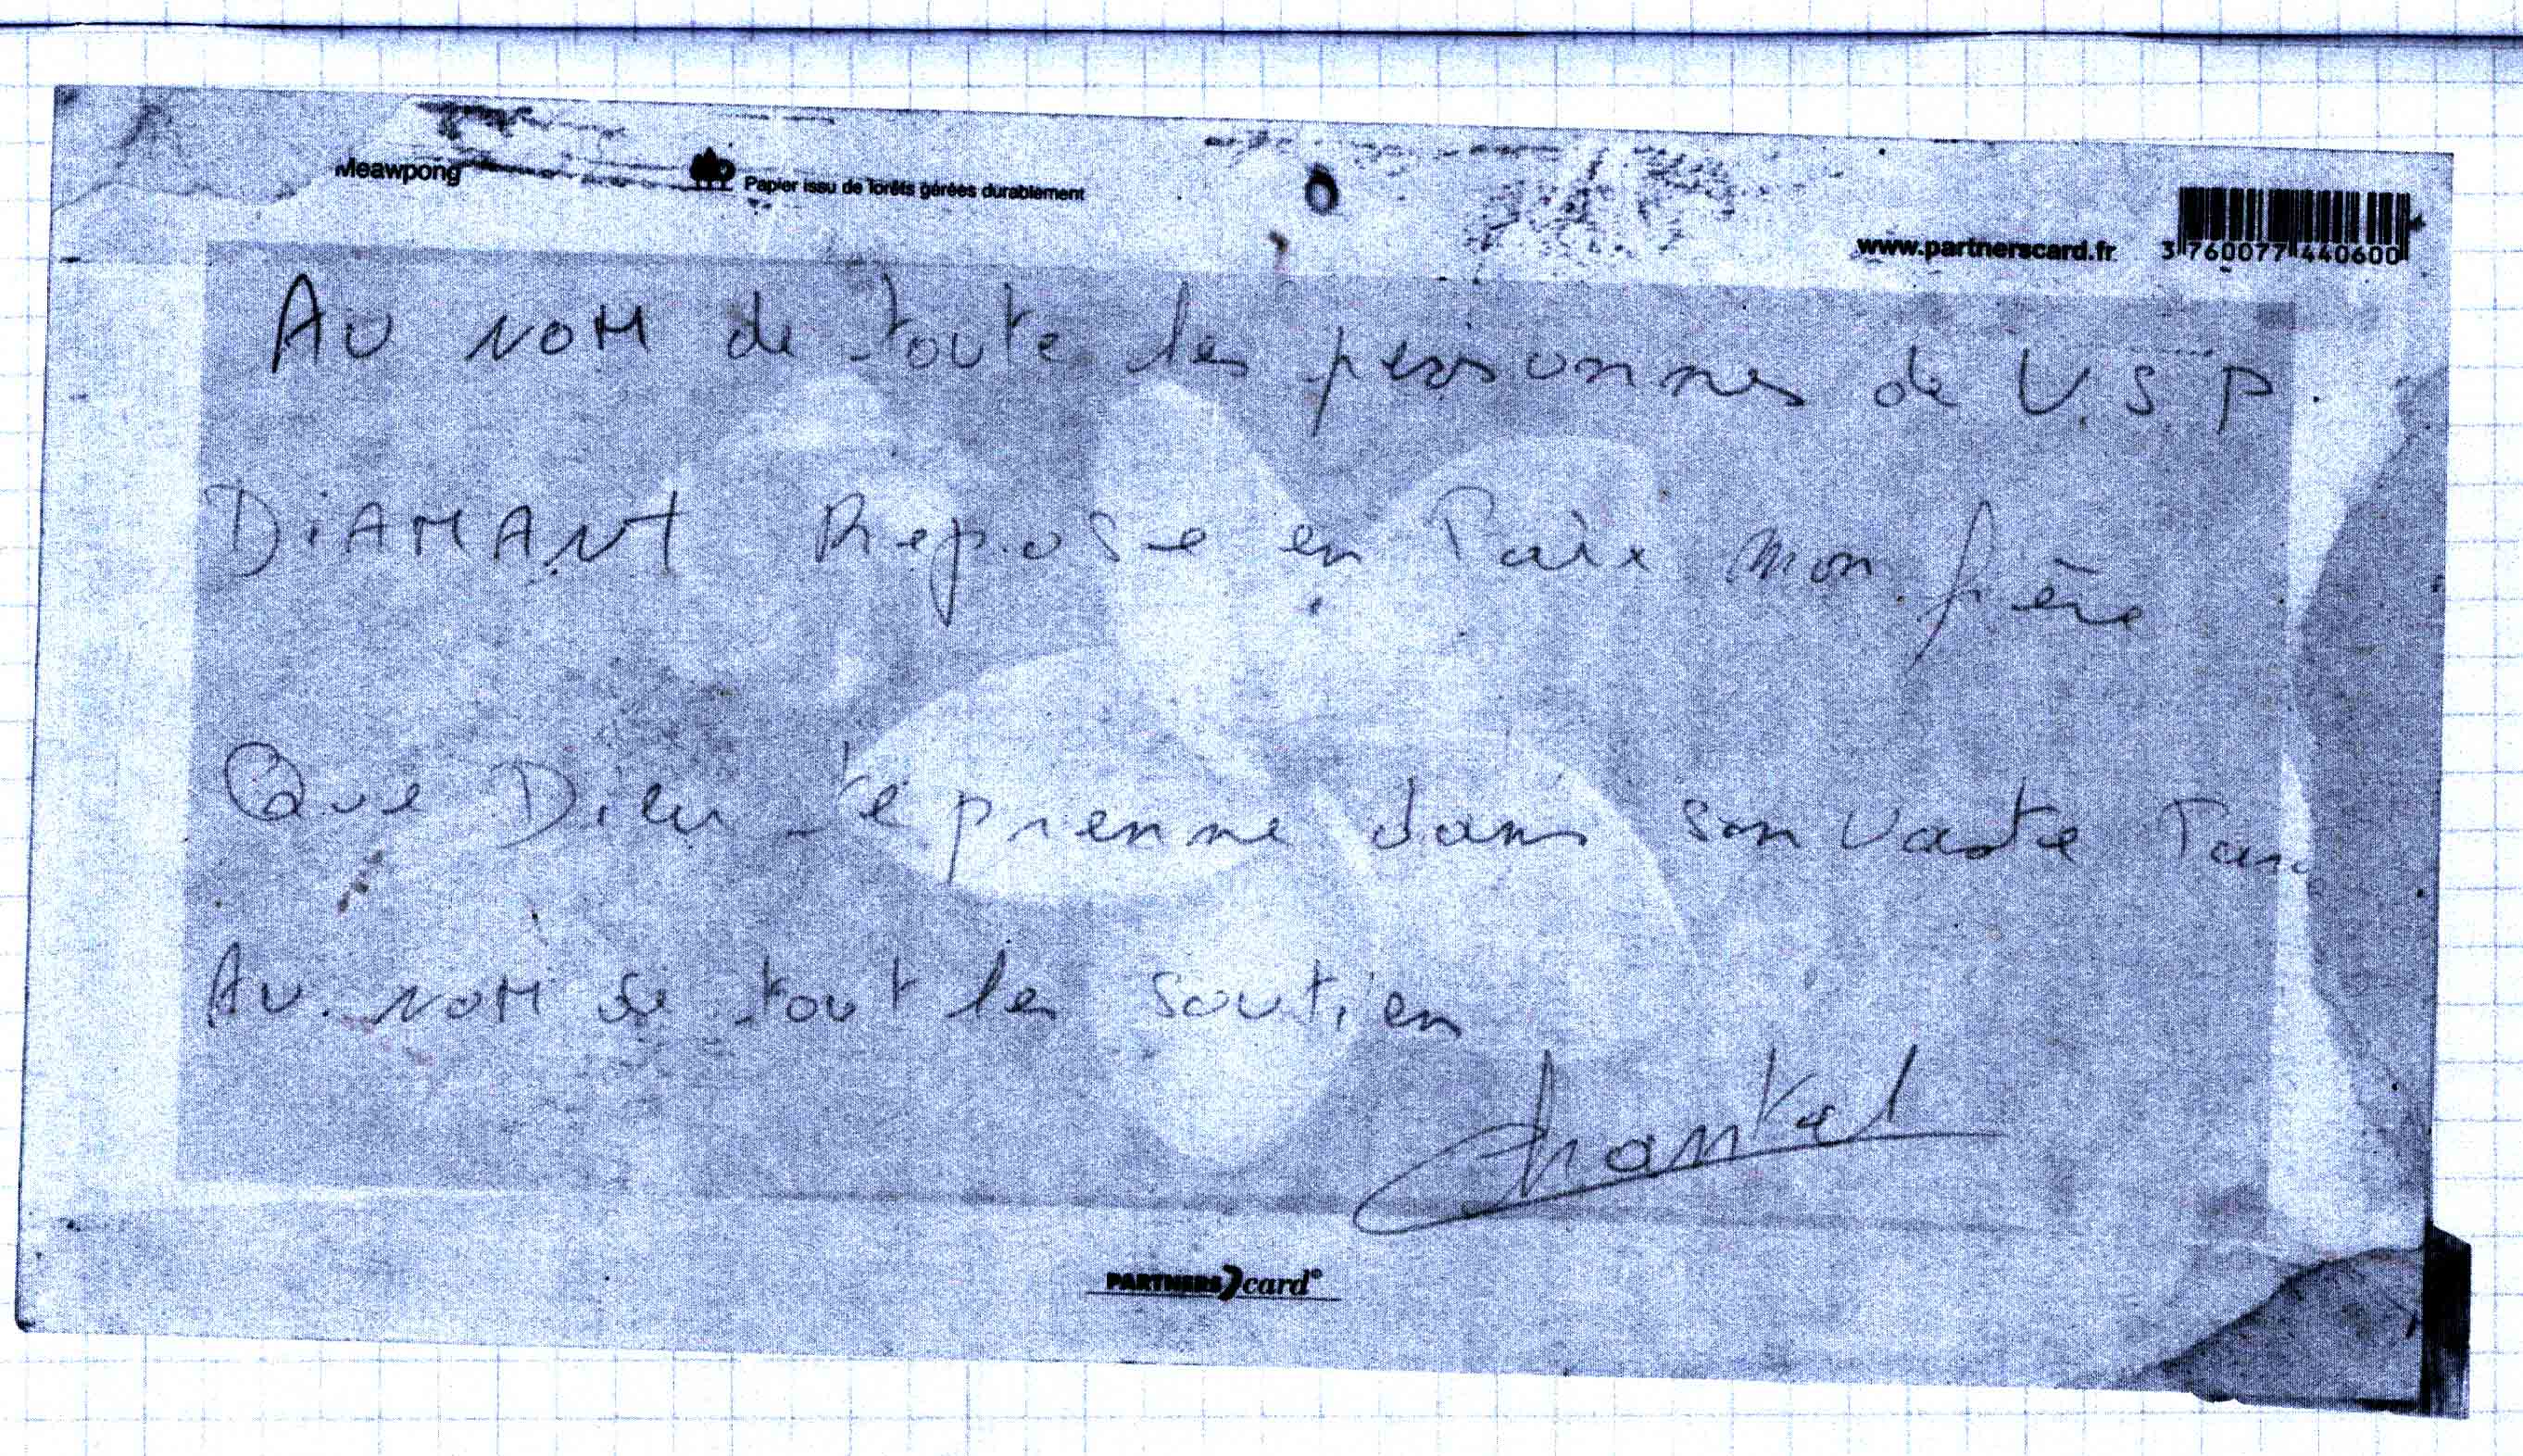 Meawpong Papier issu de forêts gérées durablement
www.partnerscard.fr 3 760077 440600
AU NOM de toute les personnes de V.S.P.
DiAMANT Repose en Paix mon frère
Que Dieu te prenne dans son vaste
Au NOM de tout les soutien
Chantal
PARTNERS card®